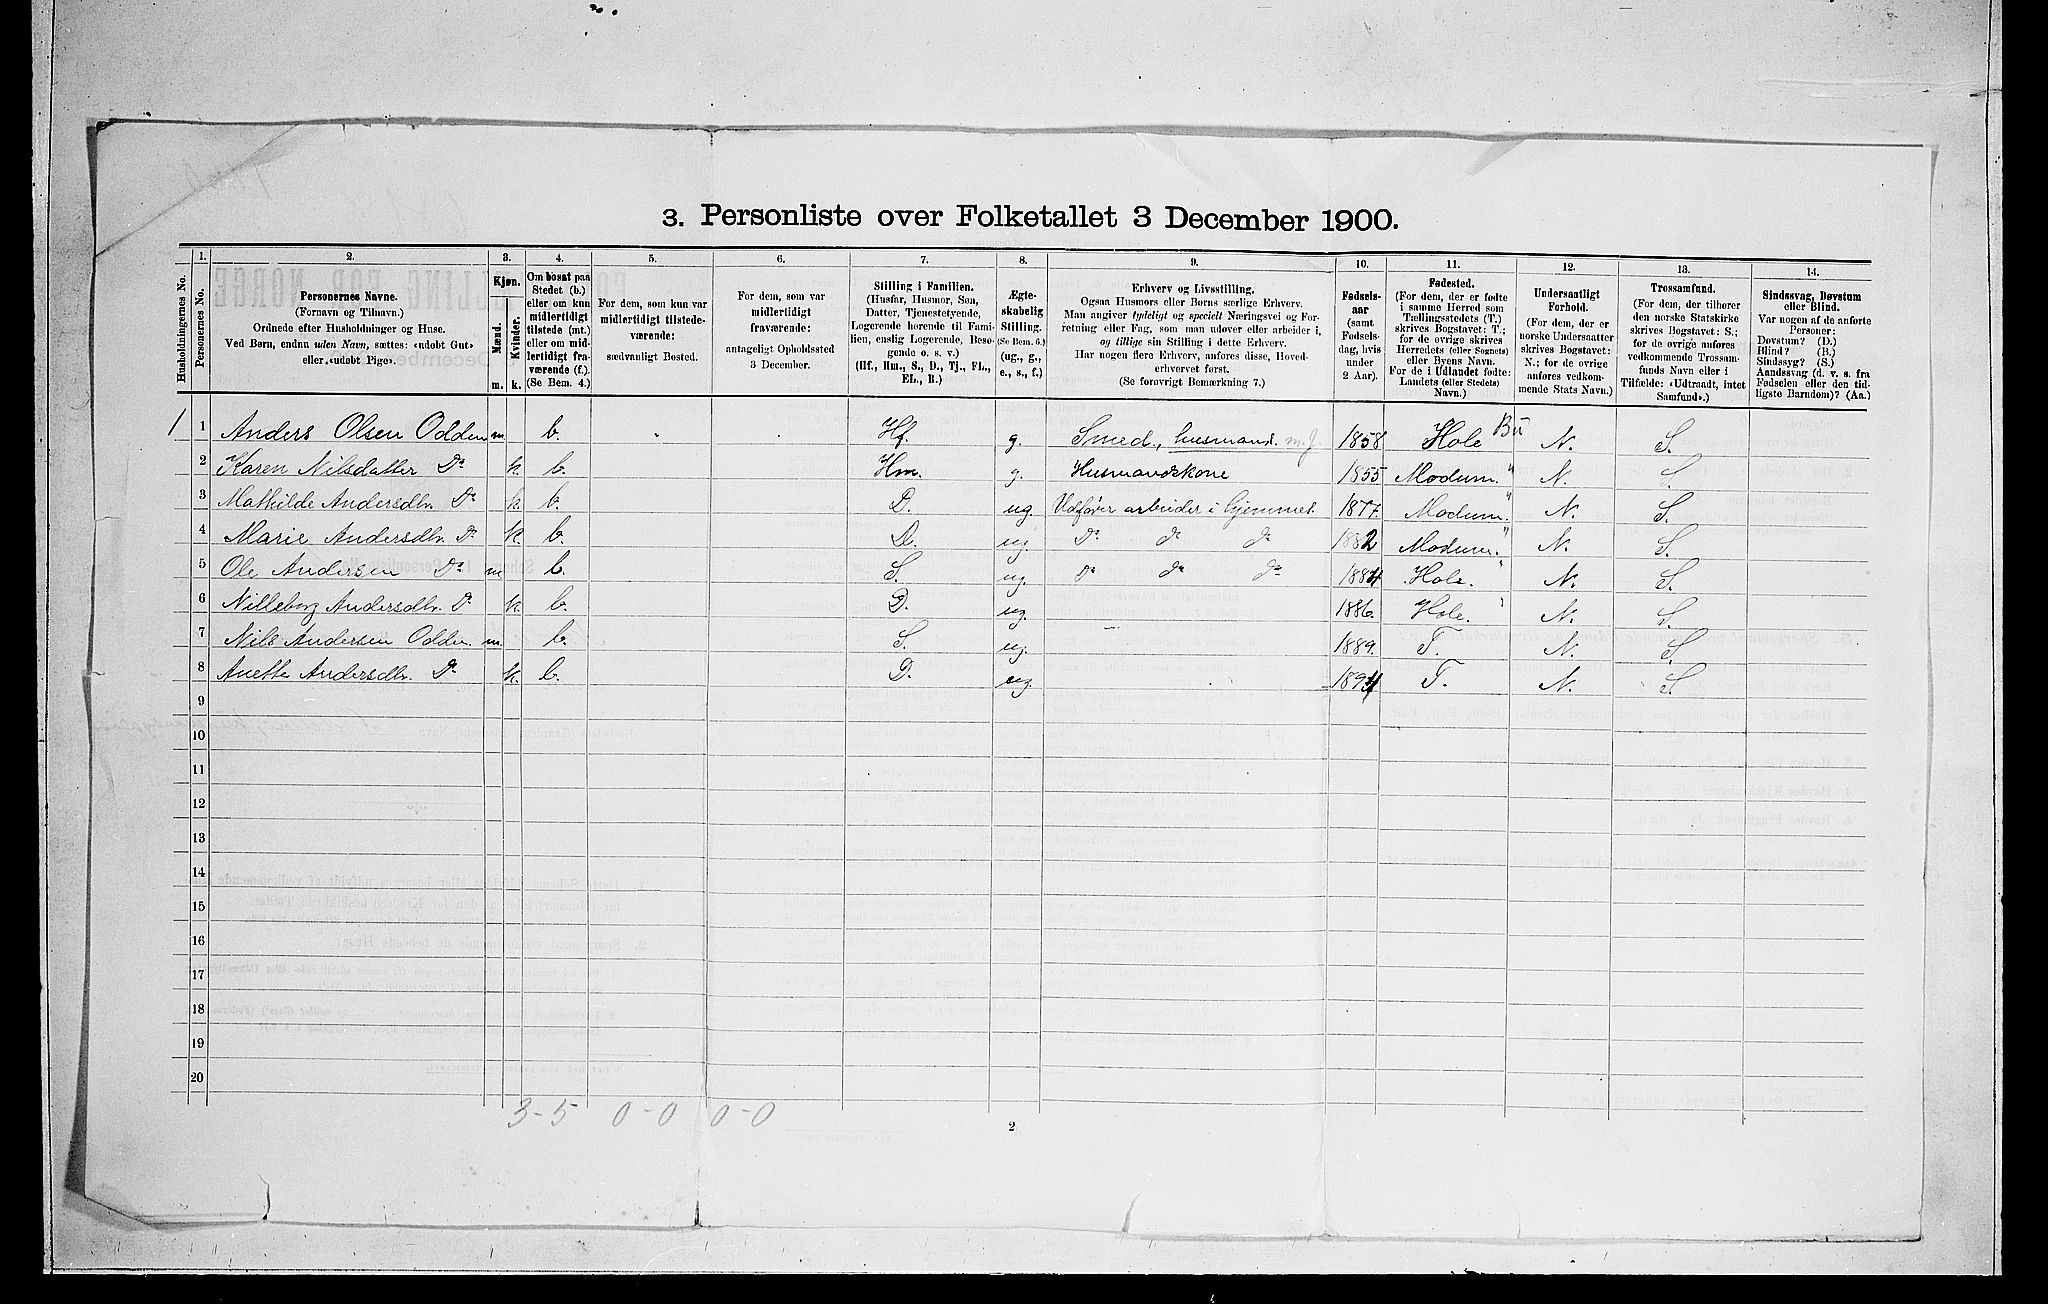 3. Personliste over Folketallet 3 December 1900.
1. 2. 3. 4. 5. 6. 7. 8. 9. 10. 11. 12. 13. 14.
Husholdningernes No.
Personernes No.
Personernes Navne.
(Fornavn og Tilnavn.)
Ordnede efter Husholdninger og Huse.
Ved Børn, endnu uden Navn, sættes: «udøbt Gut»
eller «udøbt Pige».
Kjøn.
Mænd.
Kvinder.
m. k.
Om bosat paa
Stedet (b.)
eller om kun
midlertidigt
tilstede (mt.)
eller om mid-
lertidigt fra-
værende (f.)
(Se Bem. 4.)
For dem, som kun var
midlertidigt tilstede-
værende:
sædvanligt Bosted.
For dem, som var
midlertidigt
fraværende:
antageligt Opholdssted
3 December.
Stilling i Familien.
(Husfar, Husmor, Søn,
Datter, Tjenestetyende,
Logerende hørende til Fami-
lien, enslig Logerende, Besø-
gende o. s. v.)
(Hf., Hm., S., D., Tj., FL.,
EL., B.)
Ægte-
skabelig
Stilling.
(Se Bem. 6.)
(ug., g.,
e., s., f.)
Erhverv og Livsstilling.
Ogsaa Husmors eller Børns særlige Erhverv.
Man angiver tydeligt og specielt Næringsvei og For-
retning eller Fag, som man udøver eller arbeider i,
og tillige sin Stilling i dette Erhverv.
Har nogen flere Erhverv, anføres disse, Hoved-
erhvervet først.
(Se forøvrigt Bemærkning 7.)
Fødsels-
aar
(samt
Fødsels-
dag, hvis
under
2 Aar).
Fødested.
(For dem, der er fødte
i samme Herred som
Tællingsstedets (T.)
skrives Bogstavet: T.;
for de øvrige skrives
Herredets (eller Sognets)
eller Byens Navn.
For de i Udlandet fødte:
Landets (eller Stedets)
Navn.)
Undersaatligt
Forhold.
(For dem, der er
norske Undersaatter
skrives Bogstavet:
N.; for de øvrige
anføres vedkom-
mende Stats Navn.)
Trossamfund.
(For dem, der tilhører
den norske Statskirke
skrives Bogstavet: S.;
for de øvrige anføres
vedkommende Trossam-
funds Navn eller i
Tilfælde: «Udtraadt, intet
Samfund».)
Sindssvag, Døvstum
eller Blind.
Var nogen af de anførte
Personer:
Døvstum? (D.)
Blind? (B.)
Sindssyg? (S.)
Aandssvag (d. v. s. fra
Fødselen eller den tid-
ligste Barndom)? (Aa.)
1 1 Anders Olsen Odden m. b. Hf. g. Smed, husmand m. j. 1858 Hole Bu N. S.
2 Karen Nilsdatter Do k. b. Hm. g. Husmandskone 1855 Modum. " N. S.
3 Mathilde Andersdtr. Do k. b. D. ug. Udfører arbeider i hjemmet 1877. Modum. " N. S.
4 Marie Andersdtr. Do k. b. D. ug. Do do do 1882 Modum. " N. S.
5 Ole Andersen Do m b. S. ug. Do do do 1884 Hole. " N. S.
6 Nilleborg Andersdtr. Do k. b. D. ug. 1886. Hole. " N. S.
7 Nils Andersen Odden m. b. S. ug. — 1889. T. N. S.
8 Anette Andersdtr. Do k. b. D. ug. 1894 T. N. S.
9
10
11
12
13
14
15
16
17
18
19
20
3-5 0-0 0-0
2